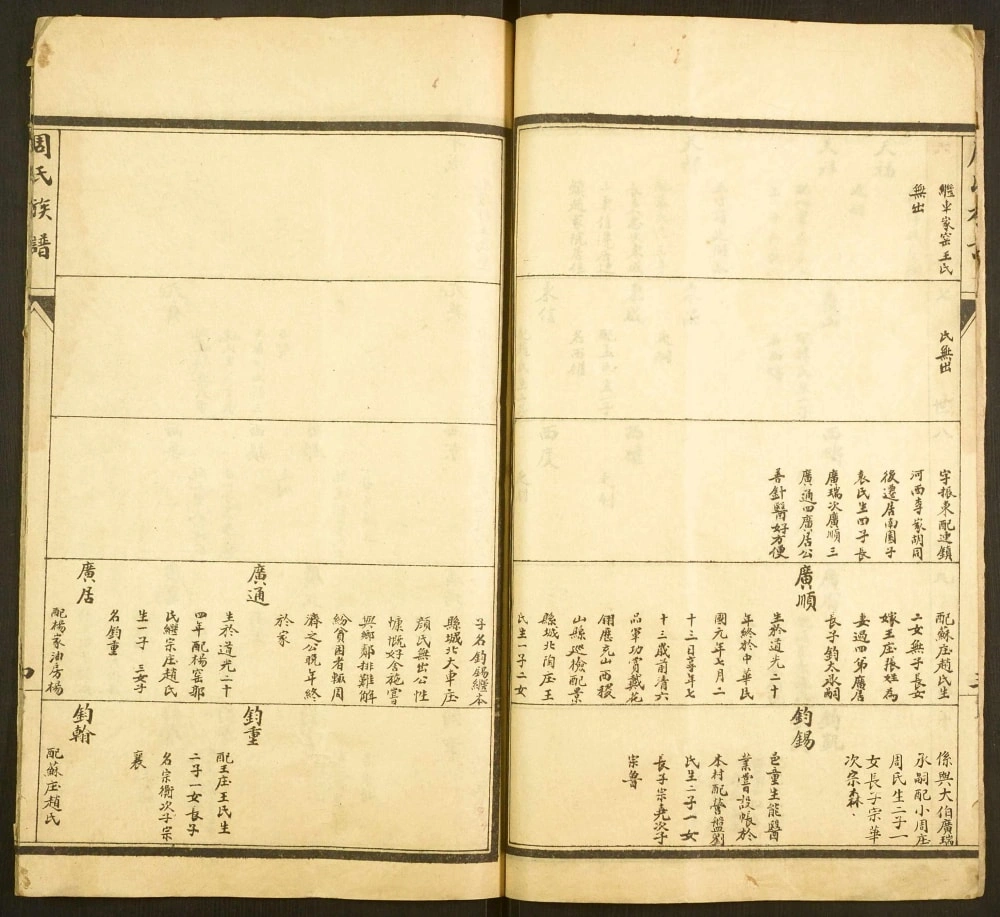 繼車家窑王氏
無出
氏無出
字振東配連鎖
河西李家胡同
後遷居南園子
袁氏生四子長
廣瑞次廣順三
廣通四廣居公
善針醫好方便
配蘇庄趙氏生
二女無子長女
嫁王庄張姓為
妻過四弟廣居
長子鈞太承嗣
廣順
生於道光二十
年終於中華民
國元年七月二
十三日享年七
十三歲前清六
品軍功賞戴花
翎應充山西稷
山縣巡檢配景
縣城北陶庄王
氏生一子二女
係與大伯廣瑞
承嗣配小周庄
周氏生二子一
女長子宗華
次宗森
鈞錫
邑童生能醫
業嘗設帳於
本村配簪盤劉
氏生二子一女
長子宗堯次子
宗魯
周氏族譜
子名鈞錫繼本
縣城北大車庄
顏氏無出公性
慷慨好舍施嘗
與鄉鄰排難解
紛貧困者輒周
濟之公晚年終
於家
廣通
生於道光二十
四年配楊窑邢
氏繼宗庄趙氏
生一子三女子
名鈞重
廣居
配楊家油房楊
鈞重
配王庄王氏生
二子一女長子
名宗衡次子宗
襄
鈞翰
配蘇庄趙氏